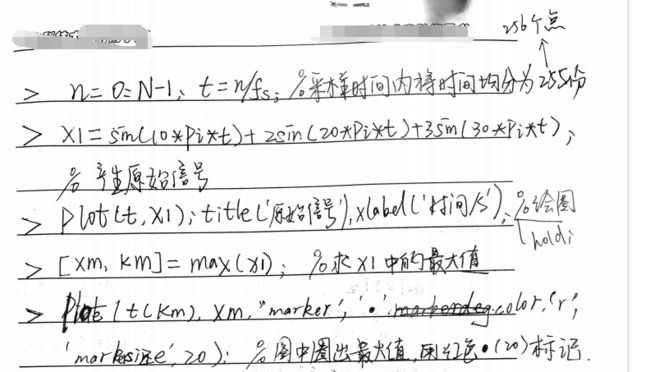 256个点
> n=0=N-1; t=n/fs; %采样时间内将时间均分为255份
> x1=sin(10*pi*t)+2sin(20*pi*t)+3sin(30*pi*t);
% 产生原始信号
> plot(t,x1); title('原始信号'), xlabel('时间/s'); %绘图
hold;
> [xm, km]=max(x1); %求x1中的最大值
> Plot(t(km), xm, "marker", '•' color, 'r',
'markersize', 20); %图中圈出最大值,用红色•(20)标记.